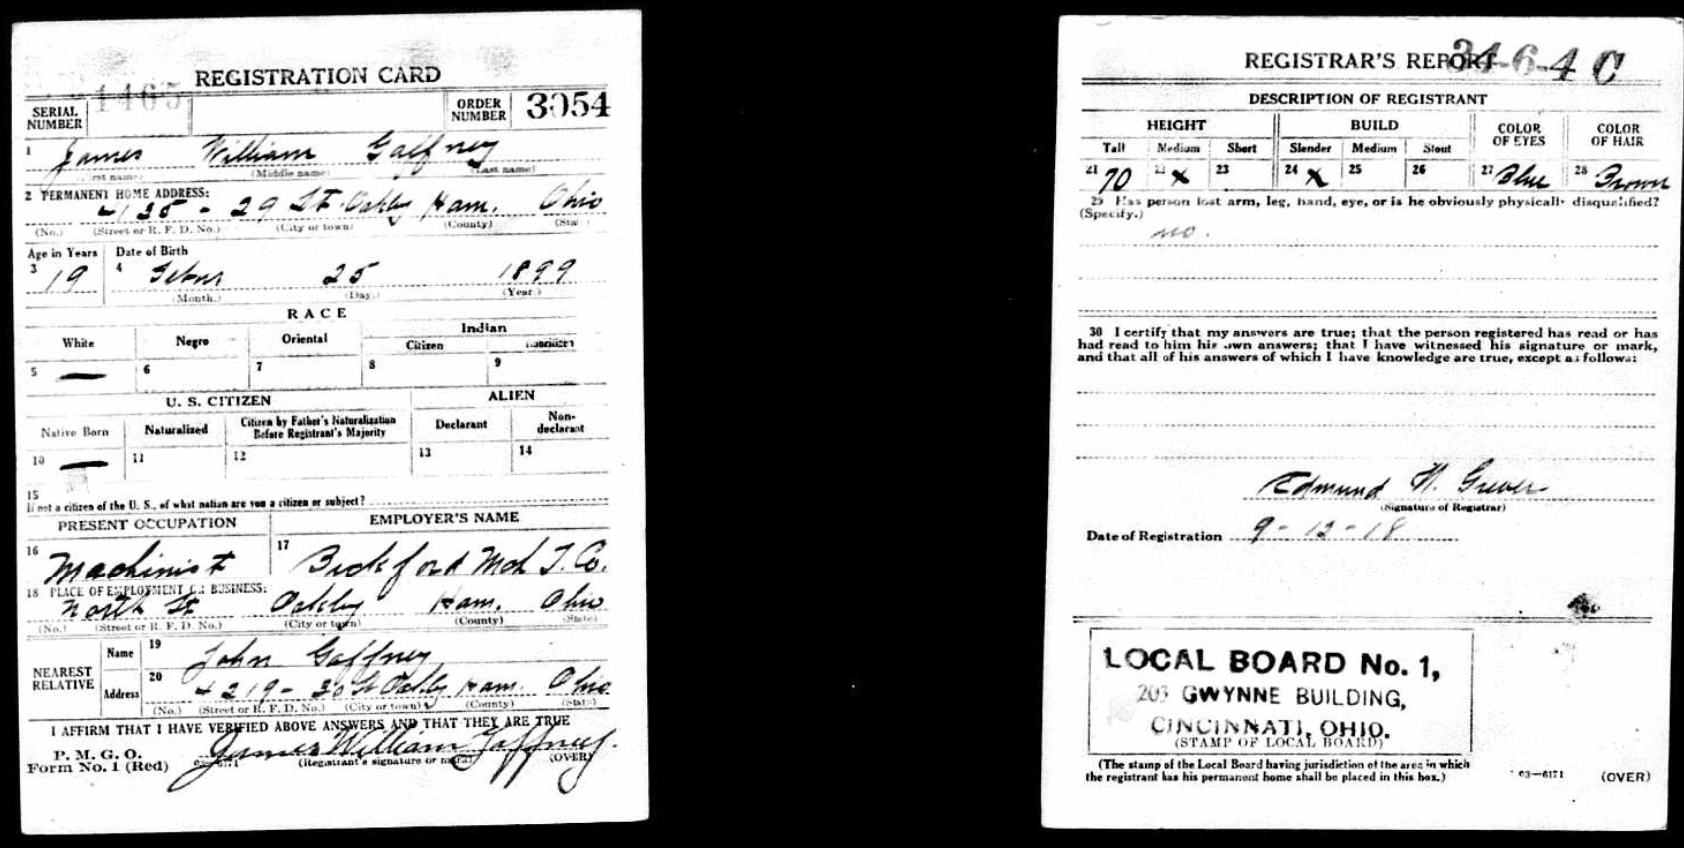 REGISTRATION CARD
SERIAL NUMBER 1465 ORDER NUMBER 3054
1 James William Gaffney
(First name) (Middle name) (Last name)
2 PERMANENT HOME ADDRESS:
4135 - 29 St. Oakley Ham. Ohio
(No.) (Street or R. F. D. No.) (City or town) (County) (State)
Age in Years Date of Birth
3 19 4 25 1899
(Month.) (Day.) (Year.)
RACE
White Negro Oriental Indian
Citizen Noncitizen
5 — 6 7 8 9
U. S. CITIZEN ALIEN
Native Born Naturalized Citizen by Father's Naturalization Before Registrant's Majority Declarant Non-declarant
10 — 11 12 13 14
15
If not a citizen of the U. S., of what nation are you a citizen or subject?
PRESENT OCCUPATION EMPLOYER'S NAME
16 Machinist 17 Bickford Mch T. Co.
18 PLACE OF EMPLOYMENT OR BUSINESS:
North St Oakley Ham. Ohio
(No.) (Street or R. F. D. No.) (City or town) (County) (State)
NEAREST RELATIVE Name 19 John Gaffney
Address 20 4219 - 30 St Oakley Ham. Ohio
(No.) (Street or R. F. D. No.) (City or town) (County) (State)
I AFFIRM THAT I HAVE VERIFIED ABOVE ANSWERS AND THAT THEY ARE TRUE
P. M. G. O.
Form No. 1 (Red) 03—6171 James William Gaffney.
(Registrant's signature or mark) (OVER)
REGISTRAR'S REPORT 34-6-4 C
DESCRIPTION OF REGISTRANT
HEIGHT BUILD COLOR OF EYES COLOR OF HAIR
Tall Medium Short Slender Medium Stout
21 70 22 x 23 24 x 25 26 27 Blue 28 Brown
29 Has person lost arm, leg, hand, eye, or is he obviously physically disqualified?
(Specify.)
no.
30 I certify that my answers are true; that the person registered has read or has
had read to him his own answers; that I have witnessed his signature or mark,
and that all of his answers of which I have knowledge are true, except as follows:
Edmund H. Grever
(Signature of Registrar)
Date of Registration 9 - 12 - 18
LOCAL BOARD No. 1,
203 GWYNNE BUILDING,
CINCINNATI, OHIO.
(STAMP OF LOCAL BOARD)
(The stamp of the Local Board having jurisdiction of the area in which
the registrant has his permanent home shall be placed in this box.)
03—6171 (OVER)